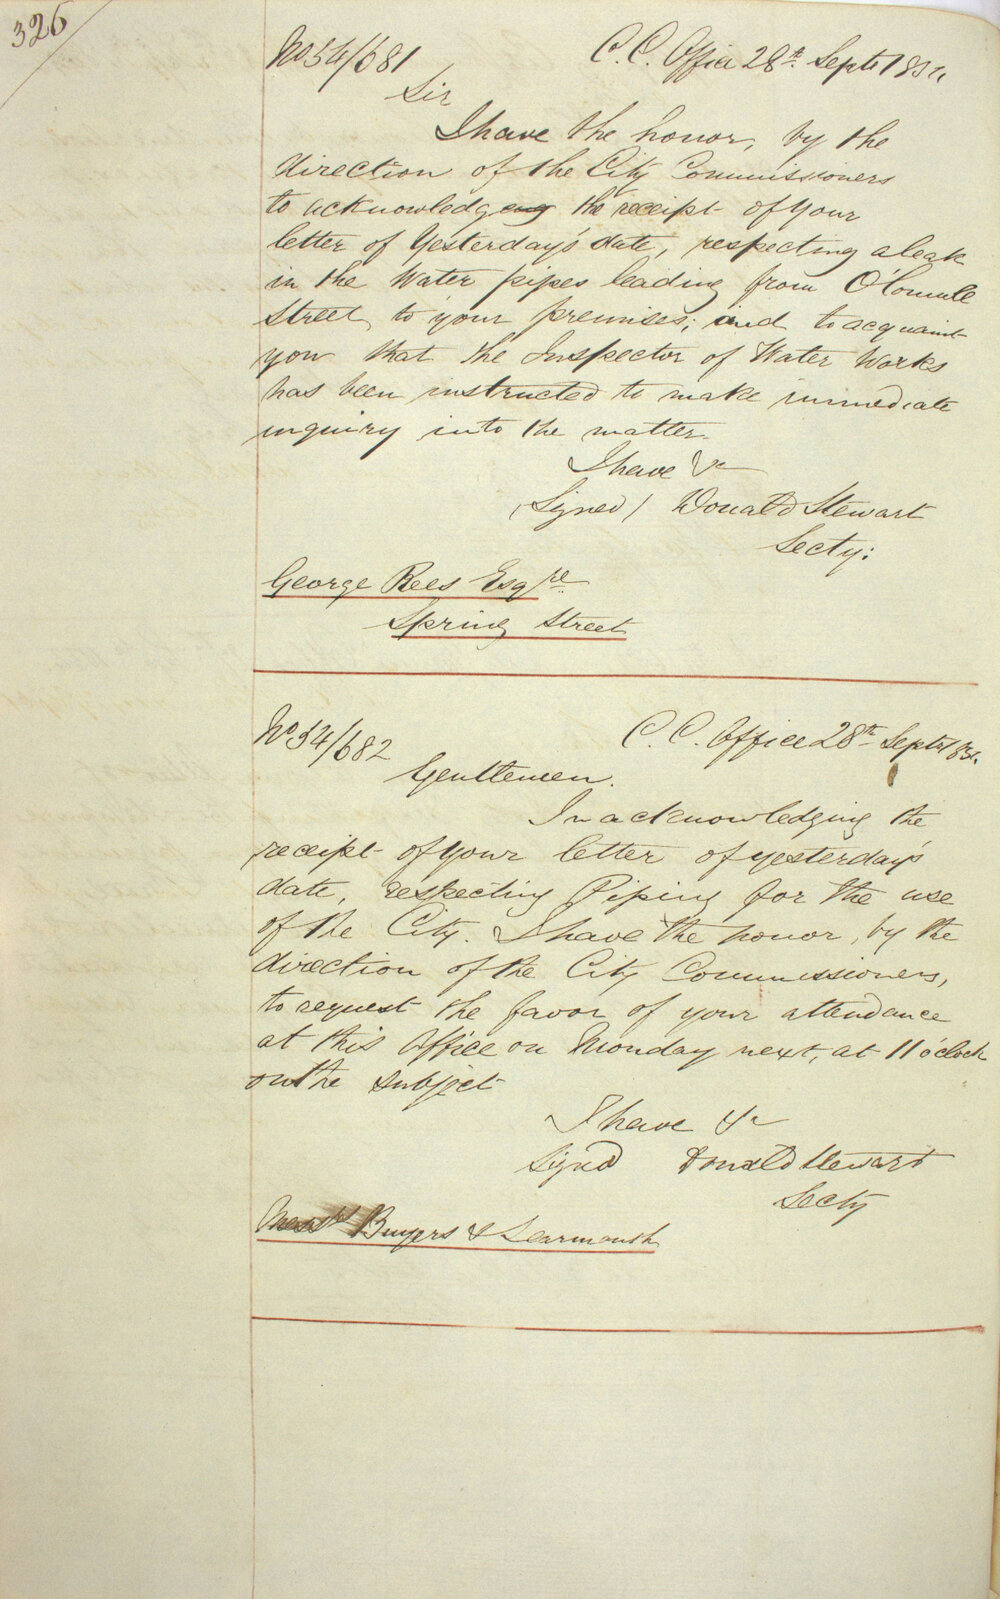 326
No 54/681 C. C. Office 28th Septr 1854
Sir
I have the honor, by the
direction of the City Commissioners
to acknowledge the receipt of your
letter of Yesterday's date, respecting a leak
in the Water pipes leading from O'Connell
Street, to your premises; and to acquaint
you that the Inspector of Water Works
has been instructed to make immediate
inquiry into the matter.
I have &c
(Signed) Donald Stewart
Secty:
George Rees Esqre
Spring Street
No 54/682 C. C. Office 28th Septr 1854.
Gentlemen.
In acknowledging the
receipt of your letter of yesterday's
date, respecting Piping for the use
of the City. I have the honor, by the
direction of the City Commissioners,
to request the favor of your attendance
at this Office on Monday next, at 11 o'clock
on the subject
I have &c
Signed Donald Stewart
Secty
Messrs Buyers & Learmonth